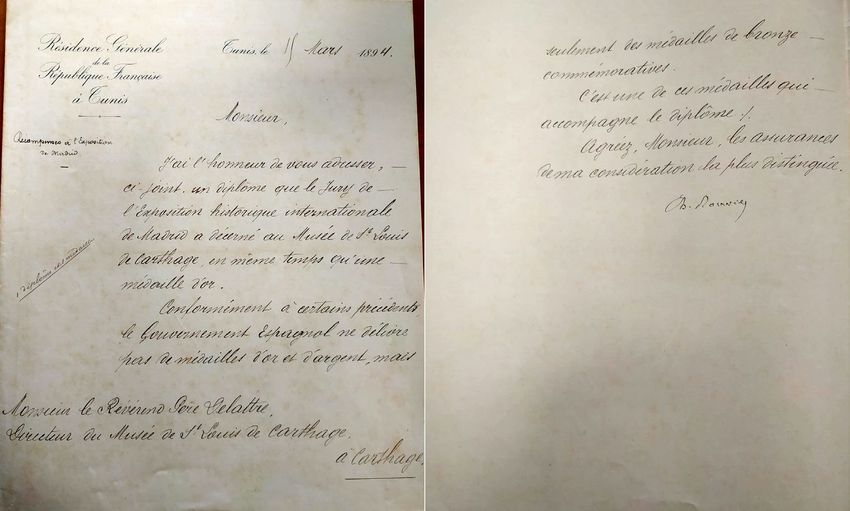 Résidence Générale
de la
République Française
à Tunis
Tunis, le 15 Mars 1894.
Monsieur,
Récompenses à l'Exposition
de Madrid
J'ai l'honneur de vous adresser,
ci-joint, un diplôme que le Jury de
l'Exposition historique internationale
de Madrid a décerné au Musée de St Louis
de Carthage, en même temps qu'une
médaille d'or.
1 diplôme et 1 médaille
Conformément à certains précédents
le Gouvernement Espagnol ne délivre
pas de médailles d'or et d'argent, mais
Monsieur le Révérend Père Delattre,
Directeur du Musée de St Louis de Carthage,
à Carthage.
seulement des médailles de bronze
commémoratives.
C'est une de ces médailles qui
acompagne le diplôme ./.
Agréez, Monsieur, les assurances
de ma considération la plus distinguée.